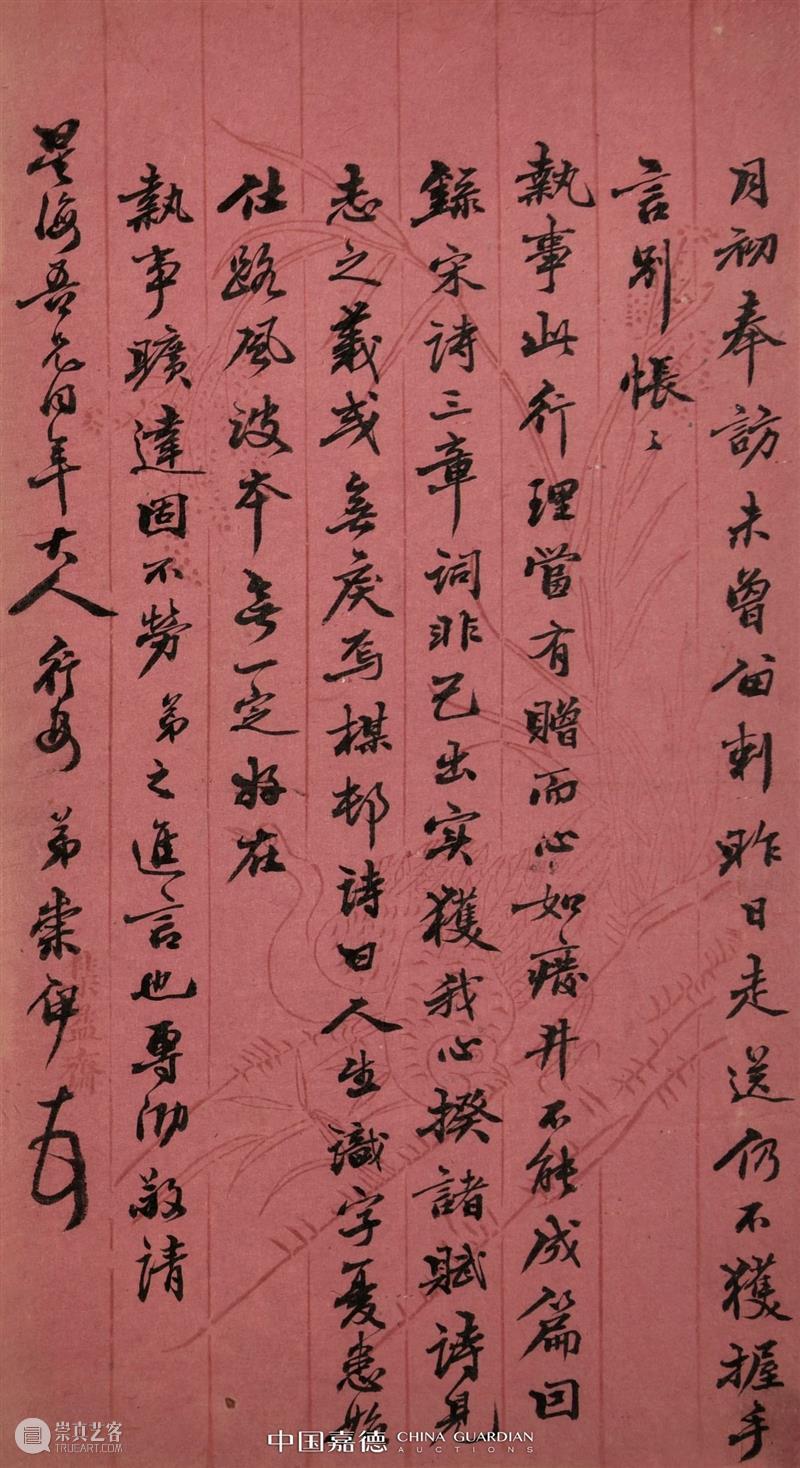 月初奉訪未曾留刺昨日走送仍不獲握手
言別悵〻
執事此行理當有贈而心如廢井不能成篇因
錄宋詩三章詞非己出实獲我心揆諸賦詩見
志之義或無戾焉楳邨詩曰人生識字憂患始
仕路風波本無一定好在
執事曠達固不勞弟之進言也專泐敬請
星海吾兄同年大人行安 弟崇伊
集蘊齋
崇真艺客
TRUEART.COM
中国嘉德 CHINA GUARDIAN
AUCTIONS